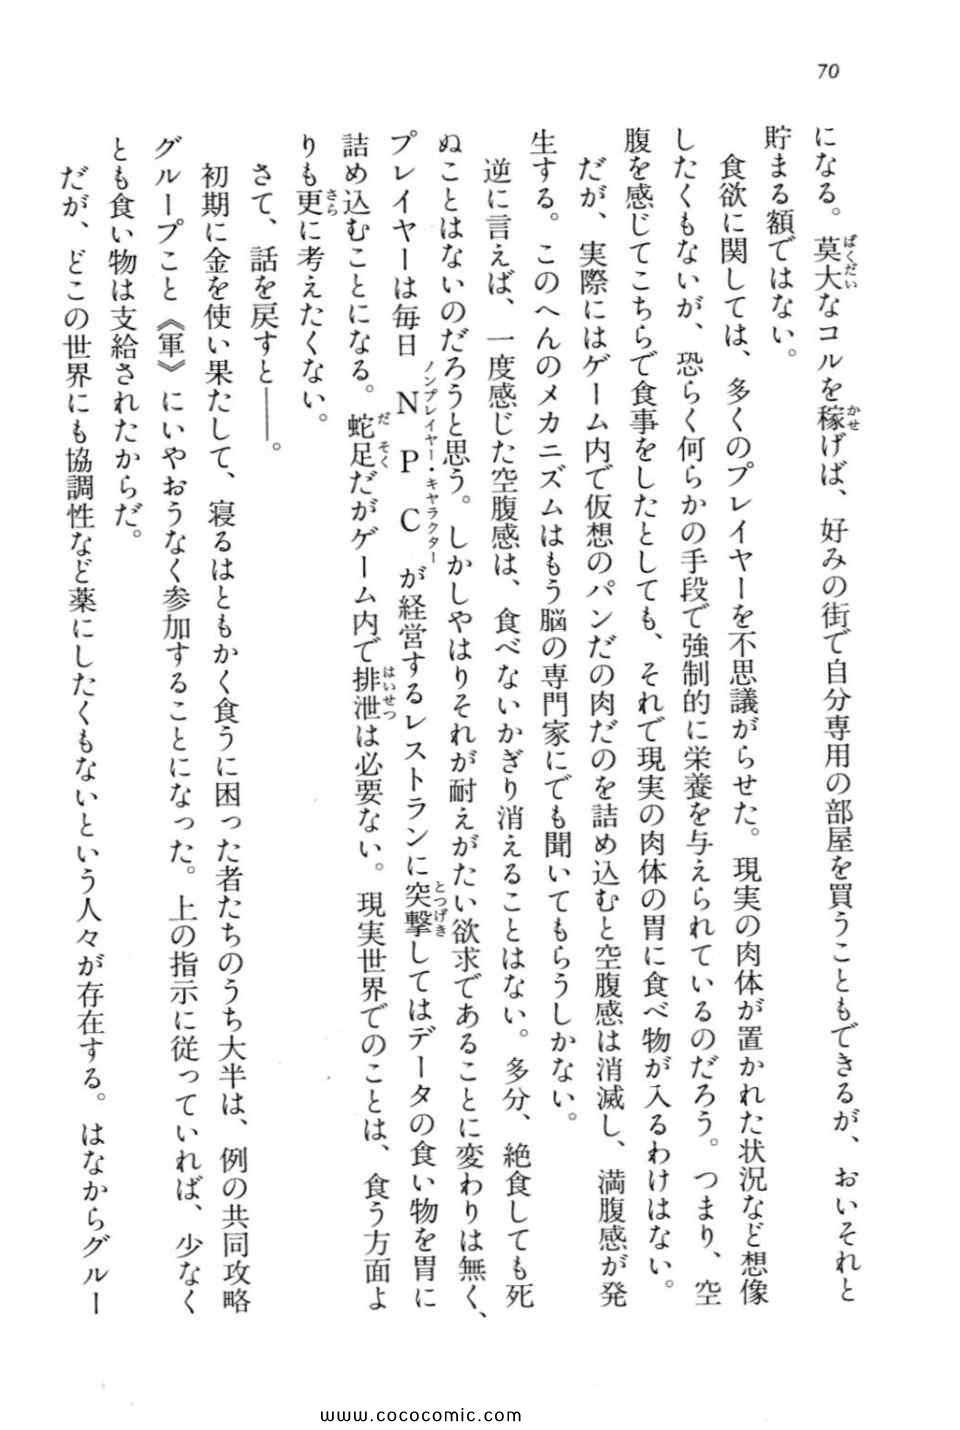 70
になる。莫大なコルを稼げば、好みの街で自分専用の部屋を買うこともできるが、おいそれと
貯まる額ではない。
食欲に関しては、多くのプレイヤーを不思議がらせた。現実の肉体が置かれた状況など想像
したくもないが、恐らく何らかの手段で強制的に栄養を与えられているのだろう。つまり、空
腹を感じてこちらで食事をしたとしても、それで現実の肉体の胃に食べ物が入るわけはない。
だが、実際にはゲーム内で仮想のパンだの肉だのを詰め込むと空腹感は消滅し、満腹感が発
生する。このへんのメカニズムはもう脳の専門家にでも聞いてもらうしかない。
逆に言えば、一度感じた空腹感は、食べないかぎり消えることはない。多分、絶食しても死
ぬことはないのだろうと思う。しかしやはりそれが耐えがたい欲求であることに変わりは無く、
プレイヤーは毎日NPCが経営するレストランに突撃してはデータの食い物を胃に
詰め込むことになる。蛇足だがゲーム内で排泄は必要ない。現実世界でのことは、食う方面よ
りも更に考えたくない。
さて、話を戻すと――。
初期に金を使い果たして、寝るはともかく食うに困った者たちのうち大半は、例の共同攻略
グループこと《軍》にいやおうなく参加することになった。上の指示に従っていれば、少なく
とも食い物は支給されたからだ。
だが、どこの世界にも協調性など薬にしたくもないという人々が存在する。はなからグルー
www.cococomic.com